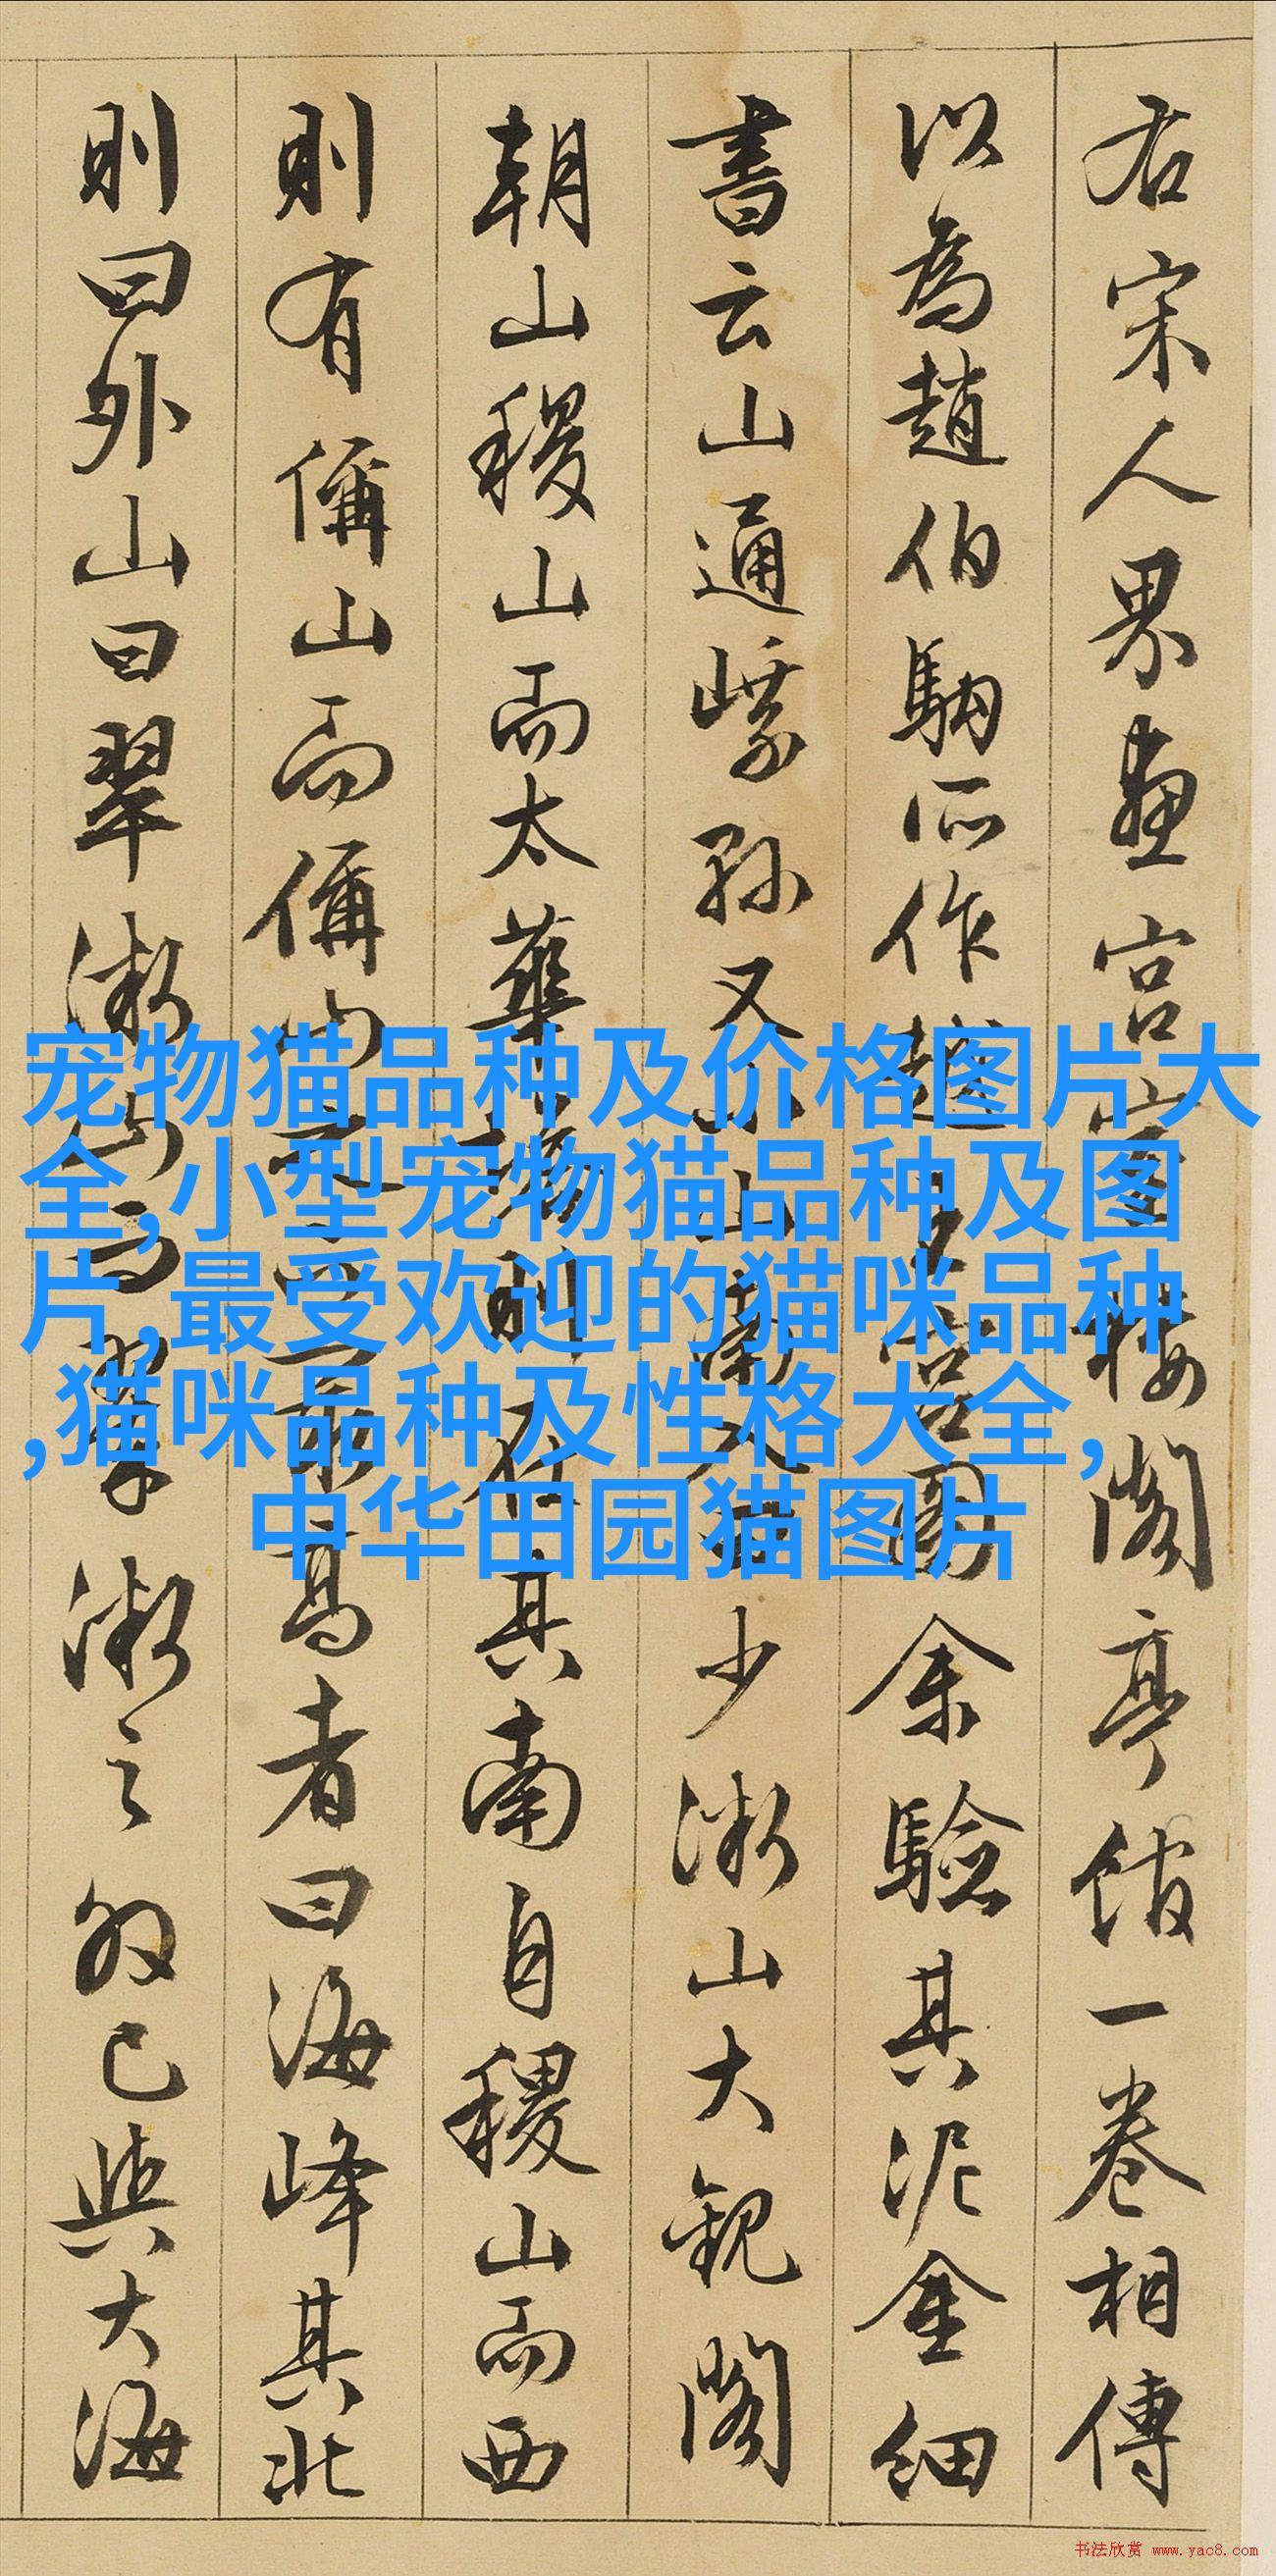 右宋人界画宫室楼阁亭馆一卷相傳
以為趙伯駒所作越王宫圖余驗其泥金細
書云山通 孫又 山南人 少微山大観閣
朝山稷山而太華 則在其南自稷山而西
則有偁山而偁山 最高者曰海峰其北
則曰外山曰翠微山而翠微之外已與大海
宠物猫品种及价格图片大
全,小型宠物猫品种及图
片,最受欢迎的猫咪品种
,猫咪品种及性格大全,
中华田园猫图片
书法欣赏 www.yac8.com